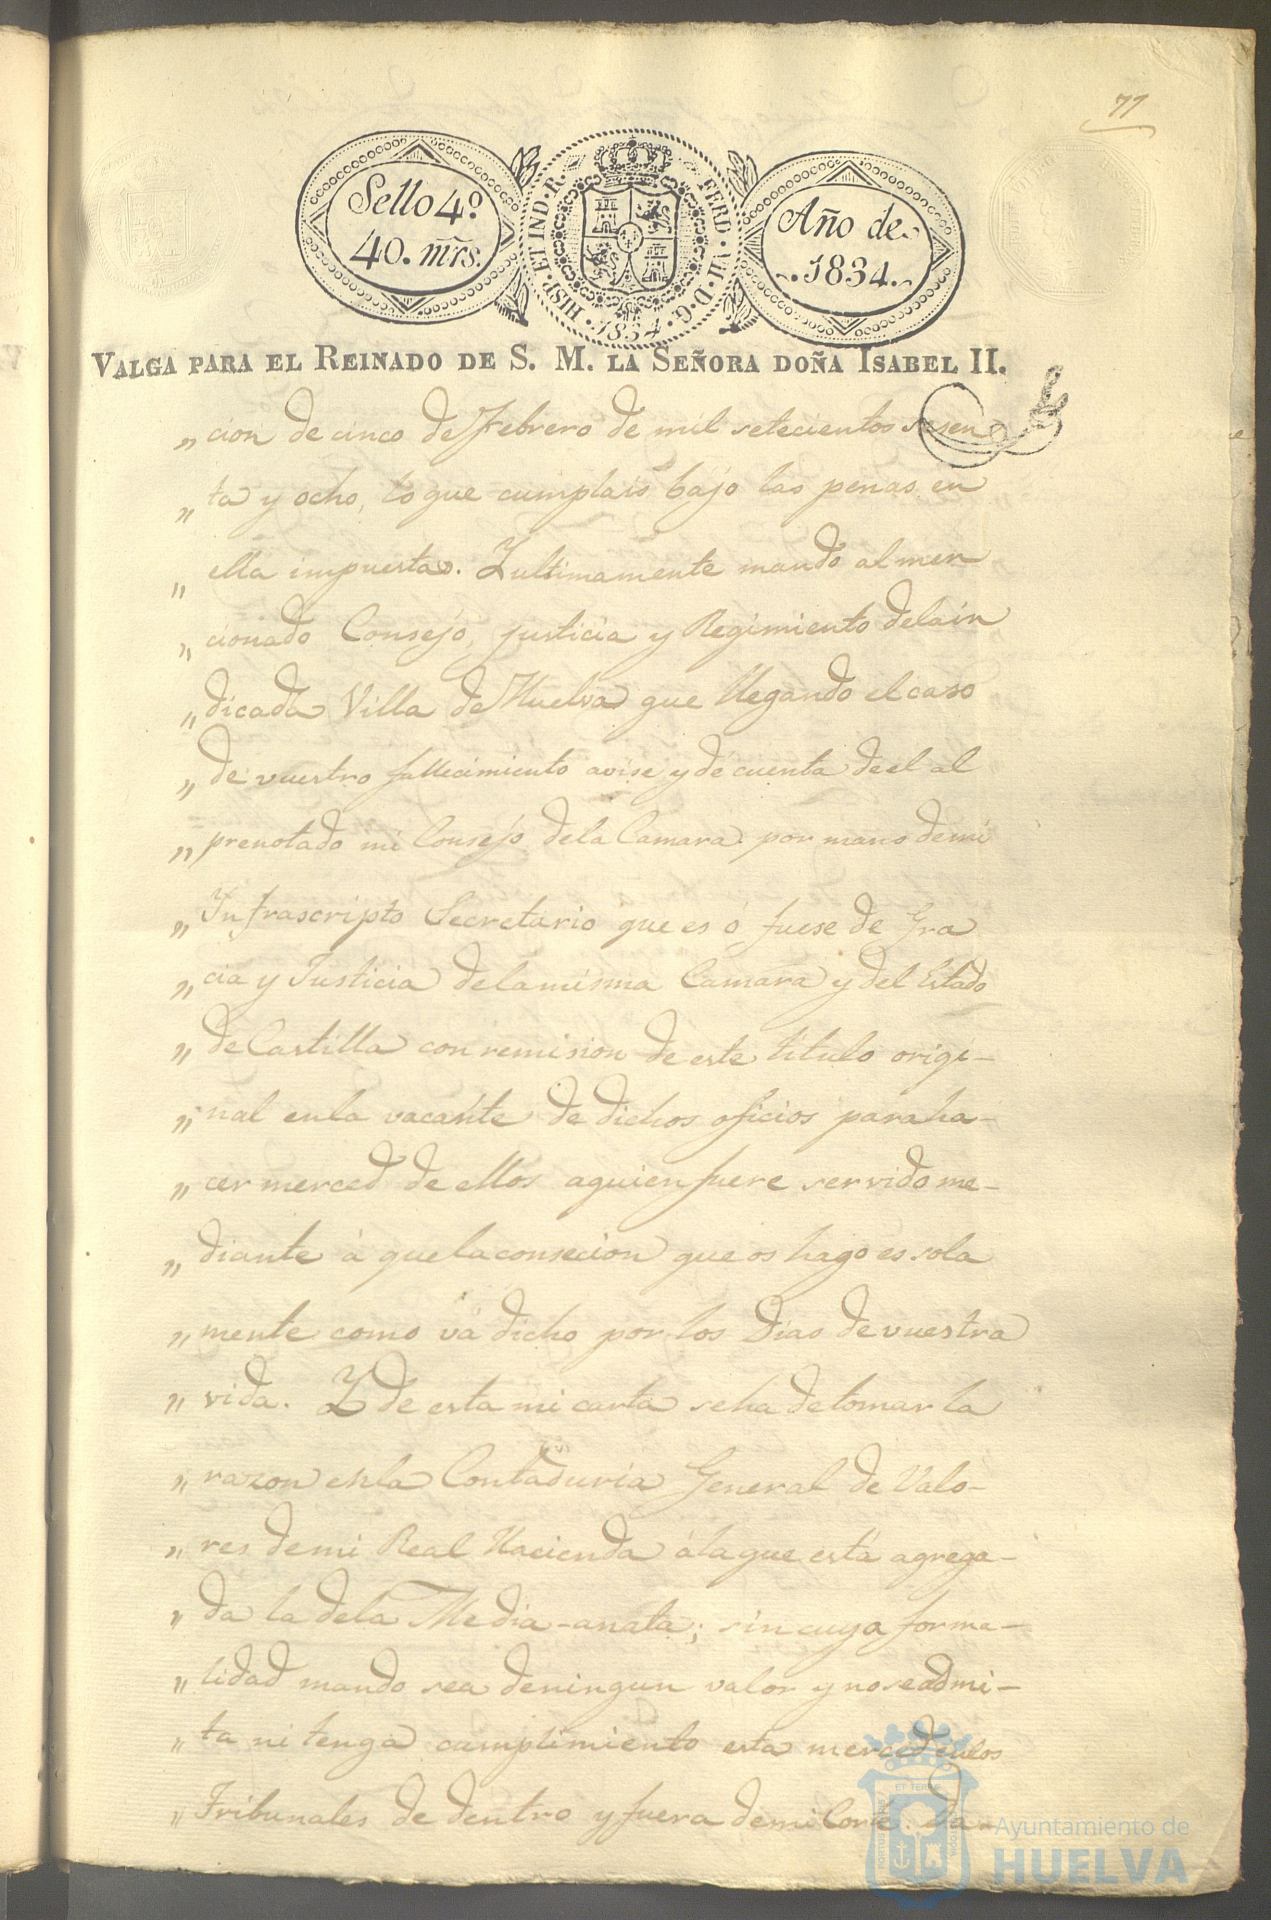 77
Sello 4º
40. mrs.
HISP · ET IND · R. FERD · VII · D · G · 1834 ·
Año de
1834.
VALGA PARA EL REINADO DE S. M. LA SEÑORA DOÑA ISABEL II.
„ cion de cinco de Febrero de mil setecientos sesen
„ ta y ocho, lo que cumplais bajo las penas en
„ ella impuestas. Y ultimamente mando al men
„ cionado Consejo, justicia y Regimiento dela in
„ dicada Villa de Huelva que llegando el caso
„ de vuestro fallecimiento avise y de cuenta de el al
„ prenotado mi Consejo dela Camara por mano demi
„ Infrascripto Secretario que es ó fuese de Gra
„ cia y Justicia dela misma Camara y del Estado
„ de Castilla con remision de este titulo origi-
„ nal enla vacante de dichos oficios para ha-
„ cer merced de ellos a quien fuere servido me-
„ diante á que la consecion que os hago es sola
„ mente como vá dicho por los Dias de vuestra
„ vida. Y de esta mi carta se ha de tomar la
„ razon enla Contaduria General de Valo-
„ res demi Real Hacienda á la que está agrega-
„ da la dela Media-anata; sin cuya forma-
„ lidad mando sea deningun valor y no se admi-
„ ta ni tenga cumplimiento esta merced enlos
„ Tribunales de dentro y fuera demi Corte. Da-
Ayuntamiento de
HUELVA